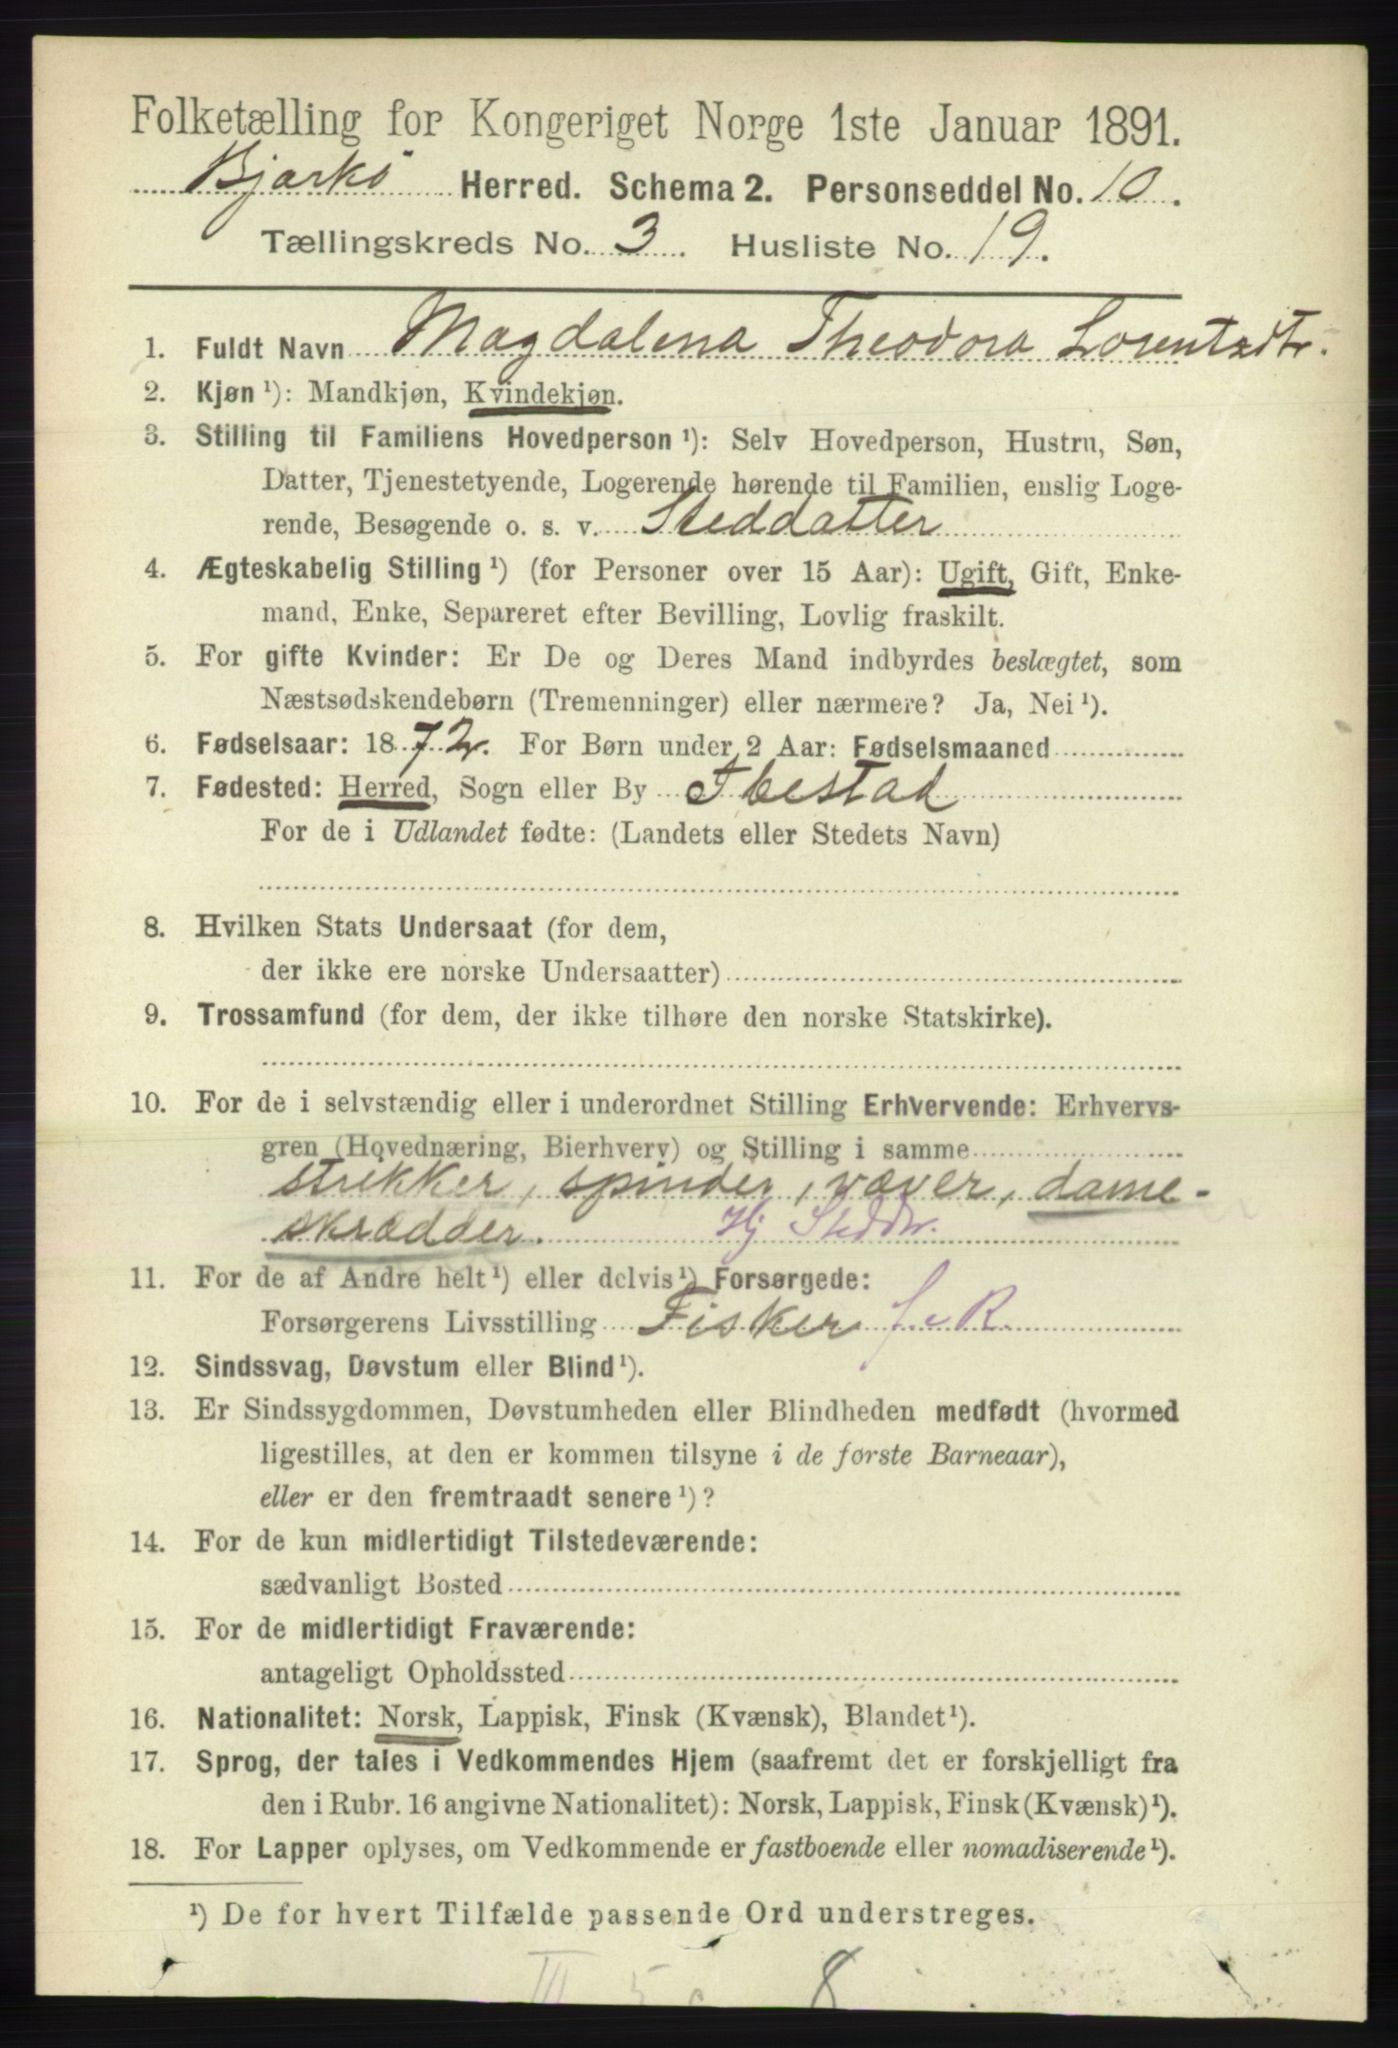 Folketælling for Kongeriget Norge 1ste Januar 1891.
Bjarkö Herred. Schema 2. Personseddel No. 10.
Tællingskreds No. 3. Husliste No. 19.
1. Fuldt Navn Magdalena Theodora Lorentzdtr.
2. Kjøn ¹): Mandkjøn, Kvindekjøn.
3. Stilling til Familiens Hovedperson ¹): Selv Hovedperson, Hustru, Søn,
Datter, Tjenestetyende, Logerende hørende til Familien, enslig Loge-
rende, Besøgende o. s. v. Steddatter
4. Ægteskabelig Stilling ¹) (for Personer over 15 Aar): Ugift, Gift, Enke-
mand, Enke, Separeret efter Bevilling, Lovlig fraskilt.
5. For gifte Kvinder: Er De og Deres Mand indbyrdes beslægtet, som
Næstsødskendebørn (Tremenninger) eller nærmere? Ja, Nei ¹).
6. Fødselsaar: 1872. For Børn under 2 Aar: Fødselsmaaned
7. Fødested: Herred, Sogn eller By Ibestad
For de i Udlandet fødte: (Landets eller Stedets Navn)
8. Hvilken Stats Undersaat (for dem,
der ikke ere norske Undersaatter)
9. Trossamfund (for dem, der ikke tilhøre den norske Statskirke).
10. For de i selvstændig eller i underordnet Stilling Erhvervende: Erhvervs-
gren (Hovednæring, Bierhverv) og Stilling i samme
strikker, spinder, væver, dame-
skrædder. Hj Steddtr.
11. For de af Andre helt ¹) eller delvis ¹) Forsørgede:
Forsørgerens Livsstilling Fisker
12. Sindssvag, Døvstum eller Blind ¹).
13. Er Sindssygdommen, Døvstumheden eller Blindheden medfødt (hvormed
ligestilles, at den er kommen tilsyne i de første Barneaar),
eller er den fremtraadt senere ¹)?
14. For de kun midlertidigt Tilstedeværende:
sædvanligt Bosted
15. For de midlertidigt Fraværende:
antageligt Opholdssted
16. Nationalitet: Norsk, Lappisk, Finsk (Kvænsk), Blandet ¹).
17. Sprog, der tales i Vedkommendes Hjem (saafremt det er forskjelligt fra
den i Rubr. 16 angivne Nationalitet): Norsk, Lappisk, Finsk (Kvænsk) ¹).
18. For Lapper oplyses, om Vedkommende er fastboende eller nomadiserende ¹).
¹) De for hvert Tilfælde passende Ord understreges.
III 8